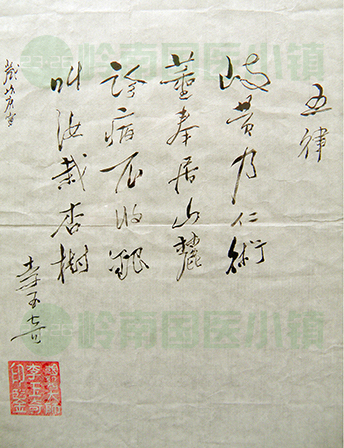 五律
岐黄为仁術
董奉居山麓
診病不收銀
叫汝栽杏樹
李玉奇
岭南国医小镇
岭南国医小镇